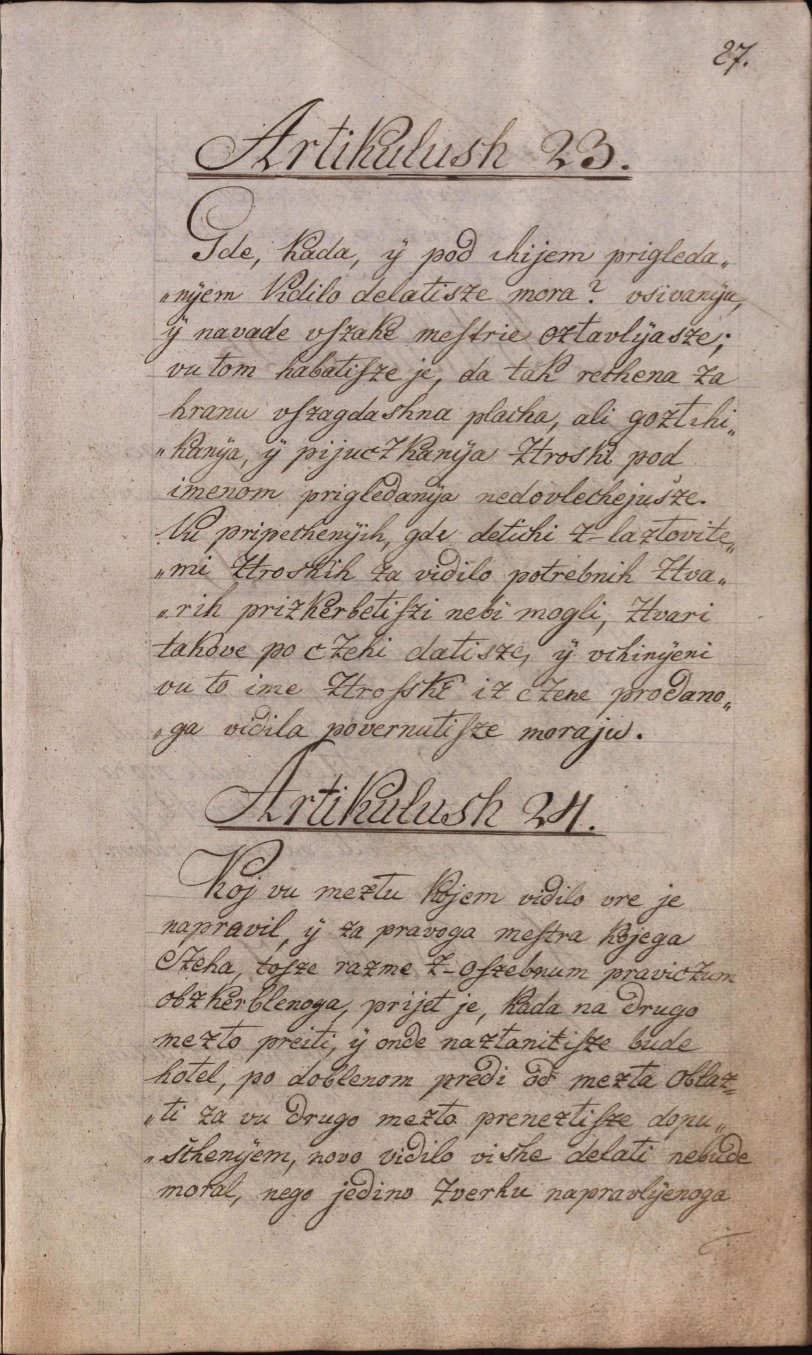 27.
Artikulush 23.
Gde, kada, ÿ pod chijem prigleda„
„nyem Vidilo delatisze mora? vsivanÿa,
ÿ navade vszake mestrie oztavlÿasze;
vu tom habatiſze je, da tak rechena za
hranu vſzagdashna placha, ali goztchi„
„kanÿa, ÿ pijuczkanÿa Ztroski pod
imenom prigledanÿa nedovlechejuſze.
Vu pripechenÿih, gde detichi z-laztovite„
„mi Ztroskih za vidilo potrebnih Ztva„
„rih prizkerbetiſzi nebi mogli, Ztvari
takove po czehi datisze, ÿ vchinÿeni
vu to ime Ztroſske iz czene prodano„
„ga vidila povernutiſze moraju.
Artikulush 24.
Koj vu meztu kojem vidilo vre je
napravil, ÿ za pravoga mestra kojega
Czeha, toſze razme z-oſzebnum praviczum
obzkerblenoga, prijet je, kada na drugo
mezto preiti, ÿ onde naztanitiſze bude
hotel, po doblenom predi od mezta oblaz„
„ti za vu drugo mezto preneztiſze dopu„
„schenÿem, novo vidilo vishe delati nebude
moral, nego jedino zverhu napravlÿenoga